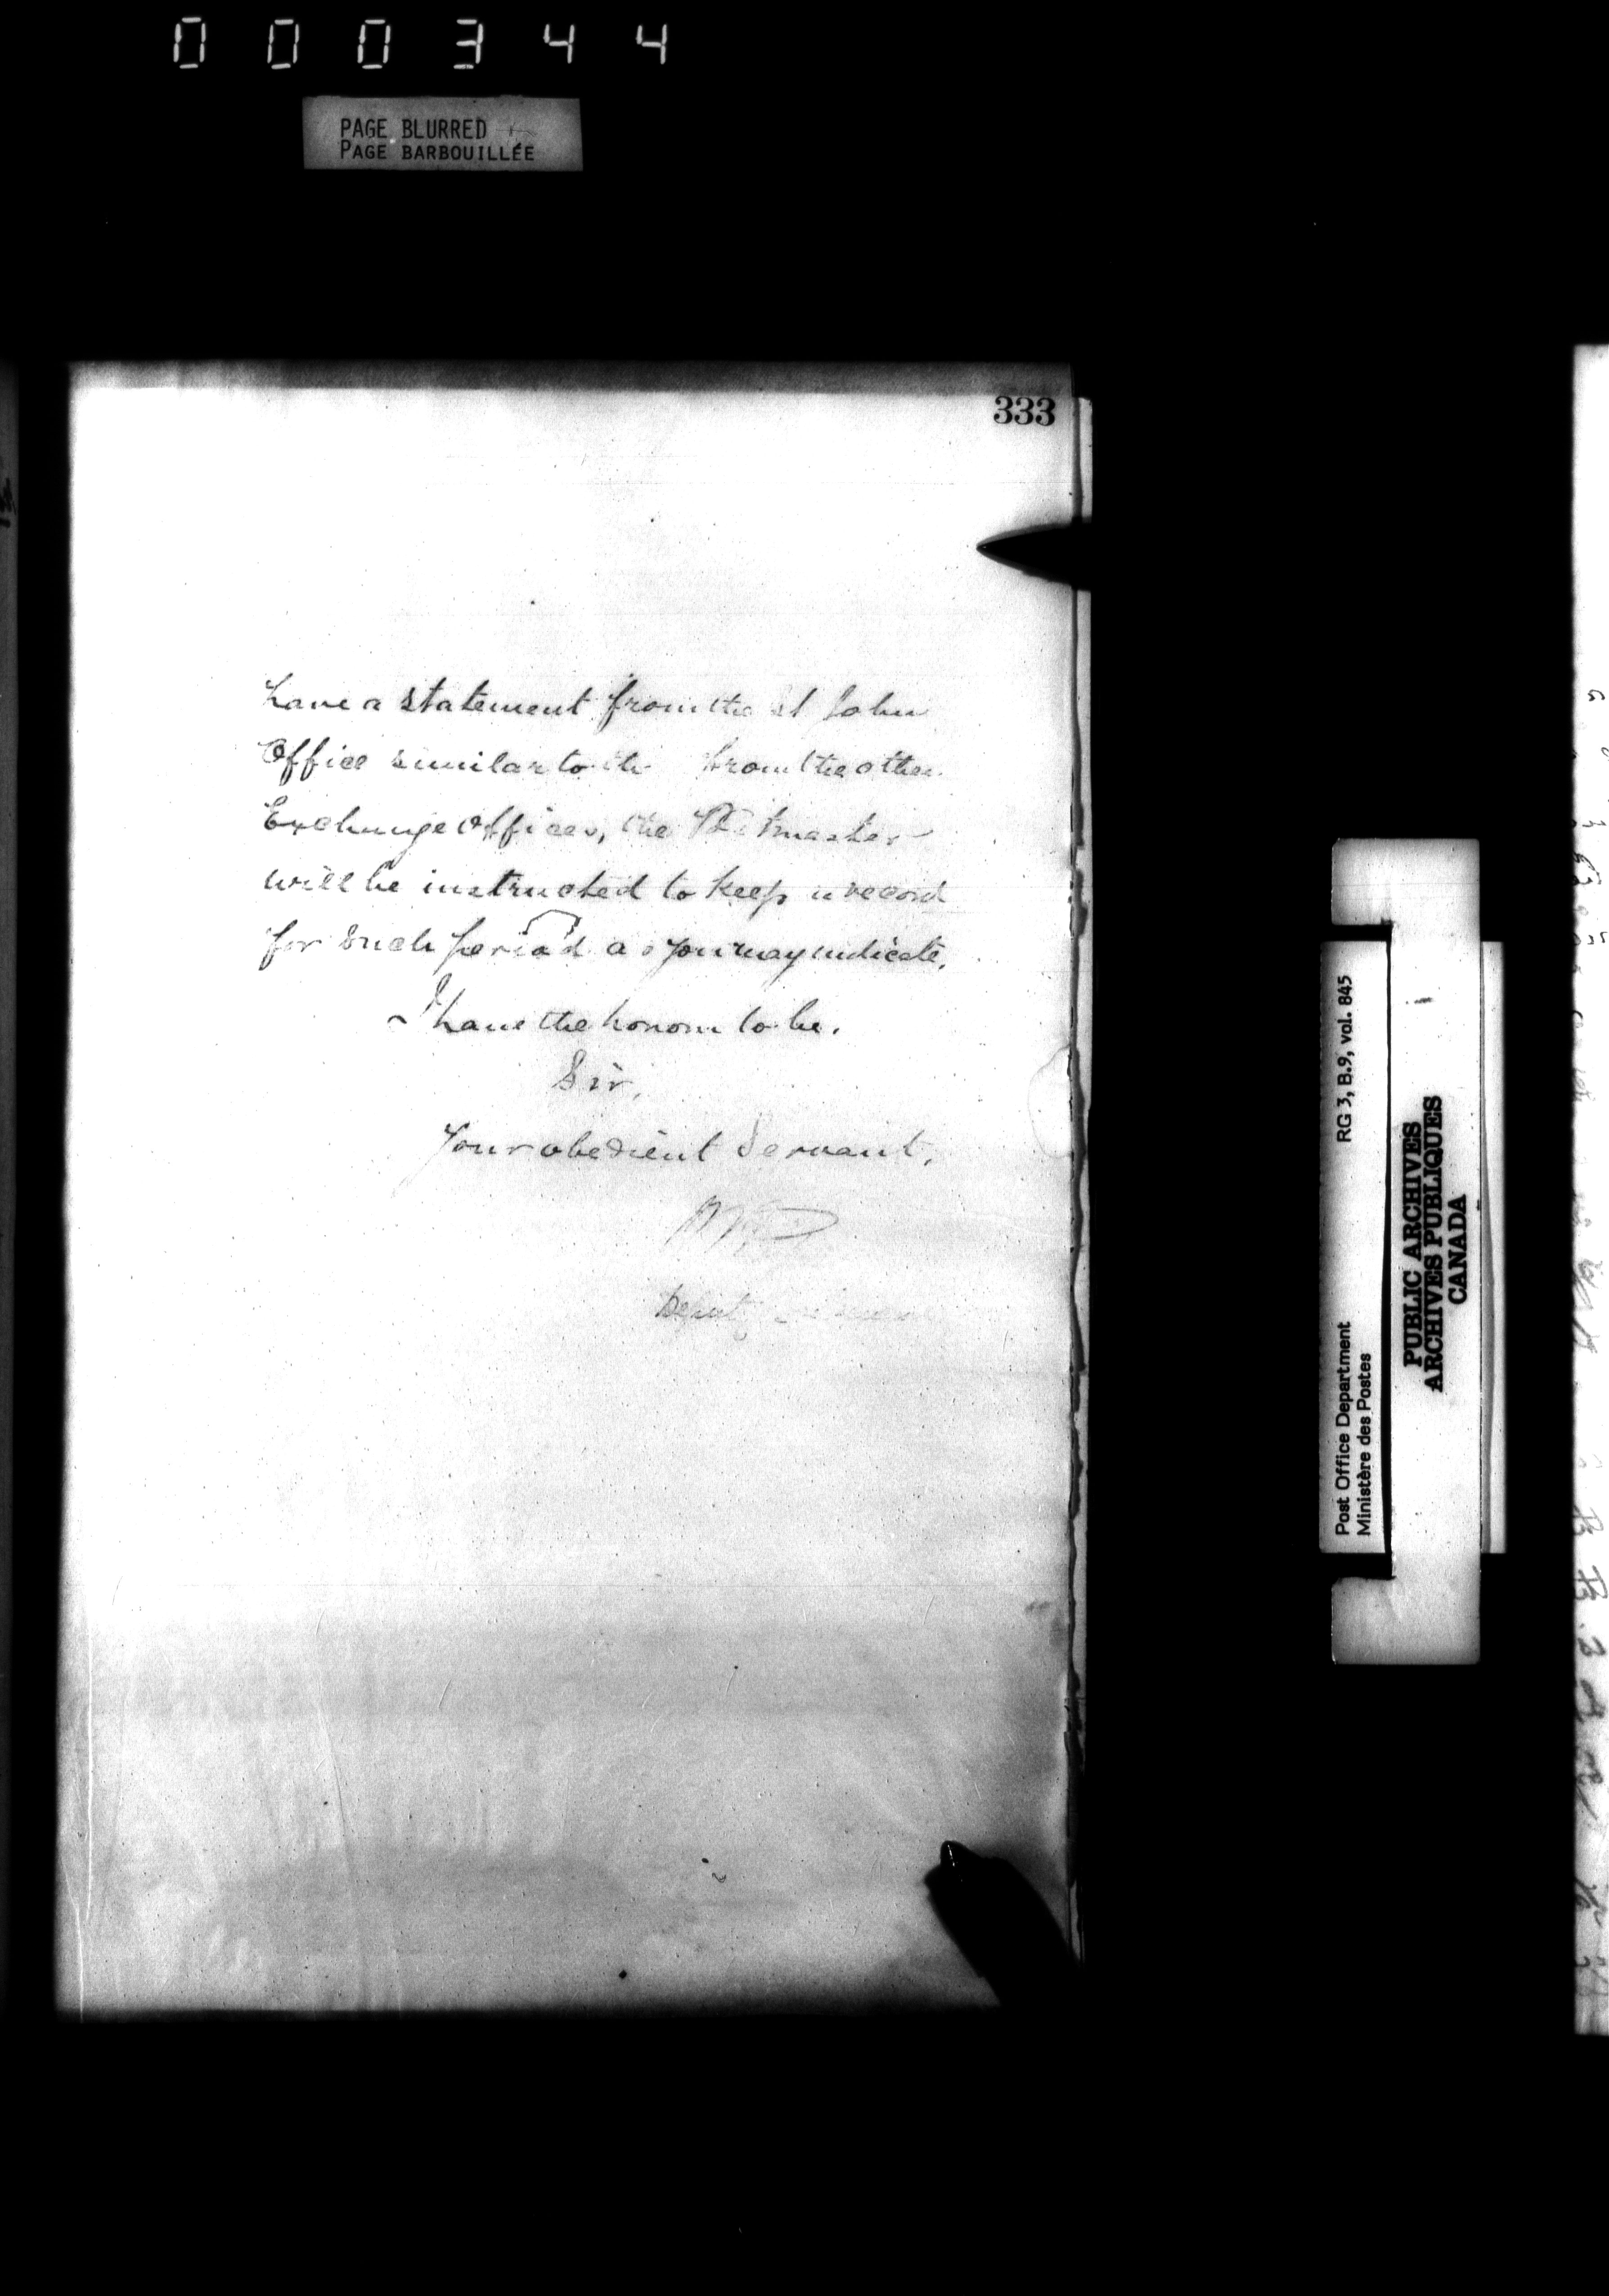 000344
PAGE BLURRED
PAGE BARBOUILLÉE
333
have a statement from the St John
Office similar to the from the other
Exchange Offices, the Postmaster
will be instructed to keep a record
for such period as you may indicate.
I have the honour to be,
Sir,
Your obedient Servant,
Deputy
Post Office Department RG 3, B.9, vol. 845
Ministère des Postes
PUBLIC ARCHIVES
ARCHIVES PUBLIQUES
CANADA